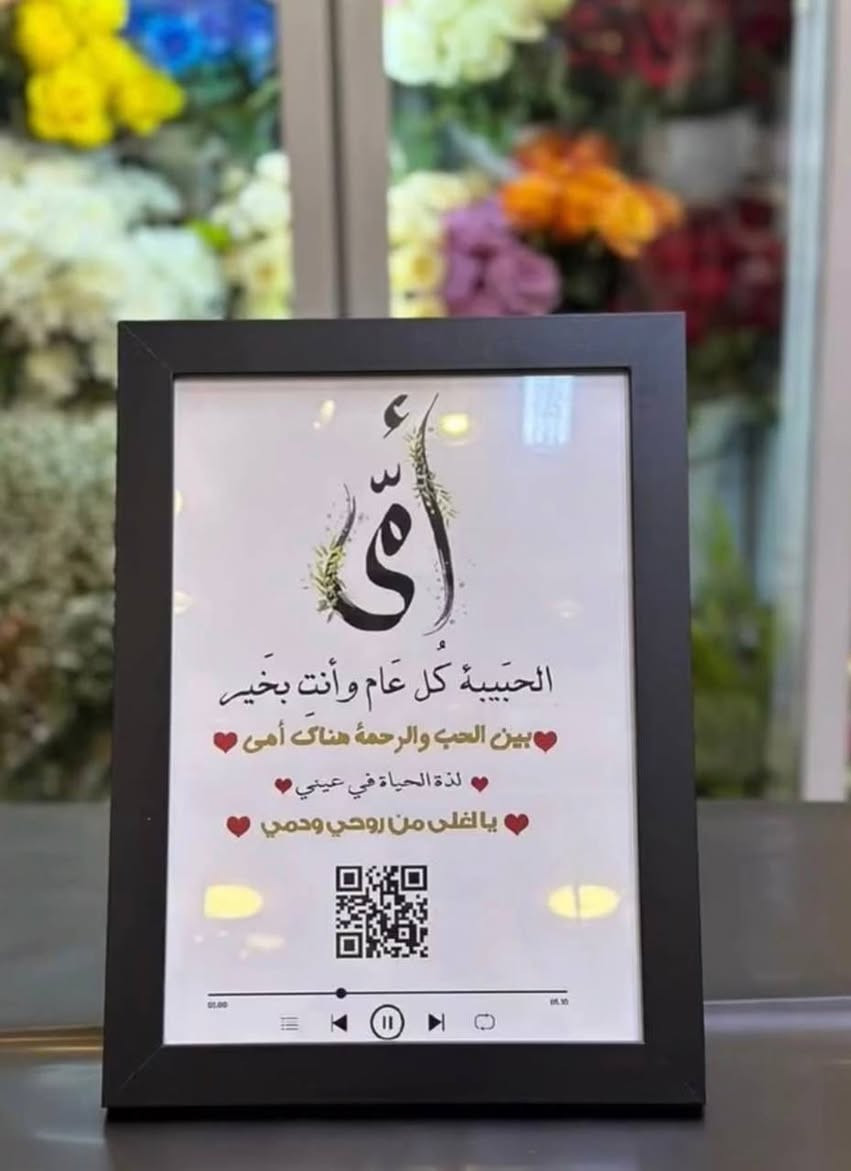 أمّى
الحبَيبة كُل عَام وأنتِ بخَير
بين الحب والرحمة هناك أمى
لذة الحياة في عيني
يالغلى من روحي ودمي
01:00
05.10